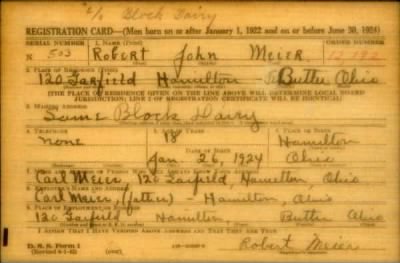 c/o Block Dairy
REGISTRATION CARD—(Men born on or after January 1, 1922 and on or before June 30, 1924)
SERIAL NUMBER 1. NAME (Print) ORDER NUMBER
N 503 Robert John Meier 12192
2. PLACE OF RESIDENCE (Print)
120 Garfield Hamilton Butler Ohio
(THE PLACE OF RESIDENCE GIVEN ON THE LINE ABOVE WILL DETERMINE LOCAL BOARD
JURISDICTION; LINE 2 OF REGISTRATION CERTIFICATE WILL BE IDENTICAL)
3. MAILING ADDRESS
Same Block Dairy
4. TELEPHONE 5. AGE IN YEARS 6. PLACE OF BIRTH
none 18 Hamilton
DATE OF BIRTH
Jan 26, 1924 Ohio
Carl Meier 120 Garfield, Hamilton, Ohio
8. EMPLOYER'S NAME AND ADDRESS
Carl Meier, (father) - Hamilton, Ohio
9. PLACE OF EMPLOYMENT OR BUSINESS
120 Garfield Hamilton Butler Ohio
I AFFIRM THAT I HAVE VERIFIED ABOVE ANSWERS AND THAT THEY ARE TRUE.
Robert Meier
D. S. S. Form 1
(over)